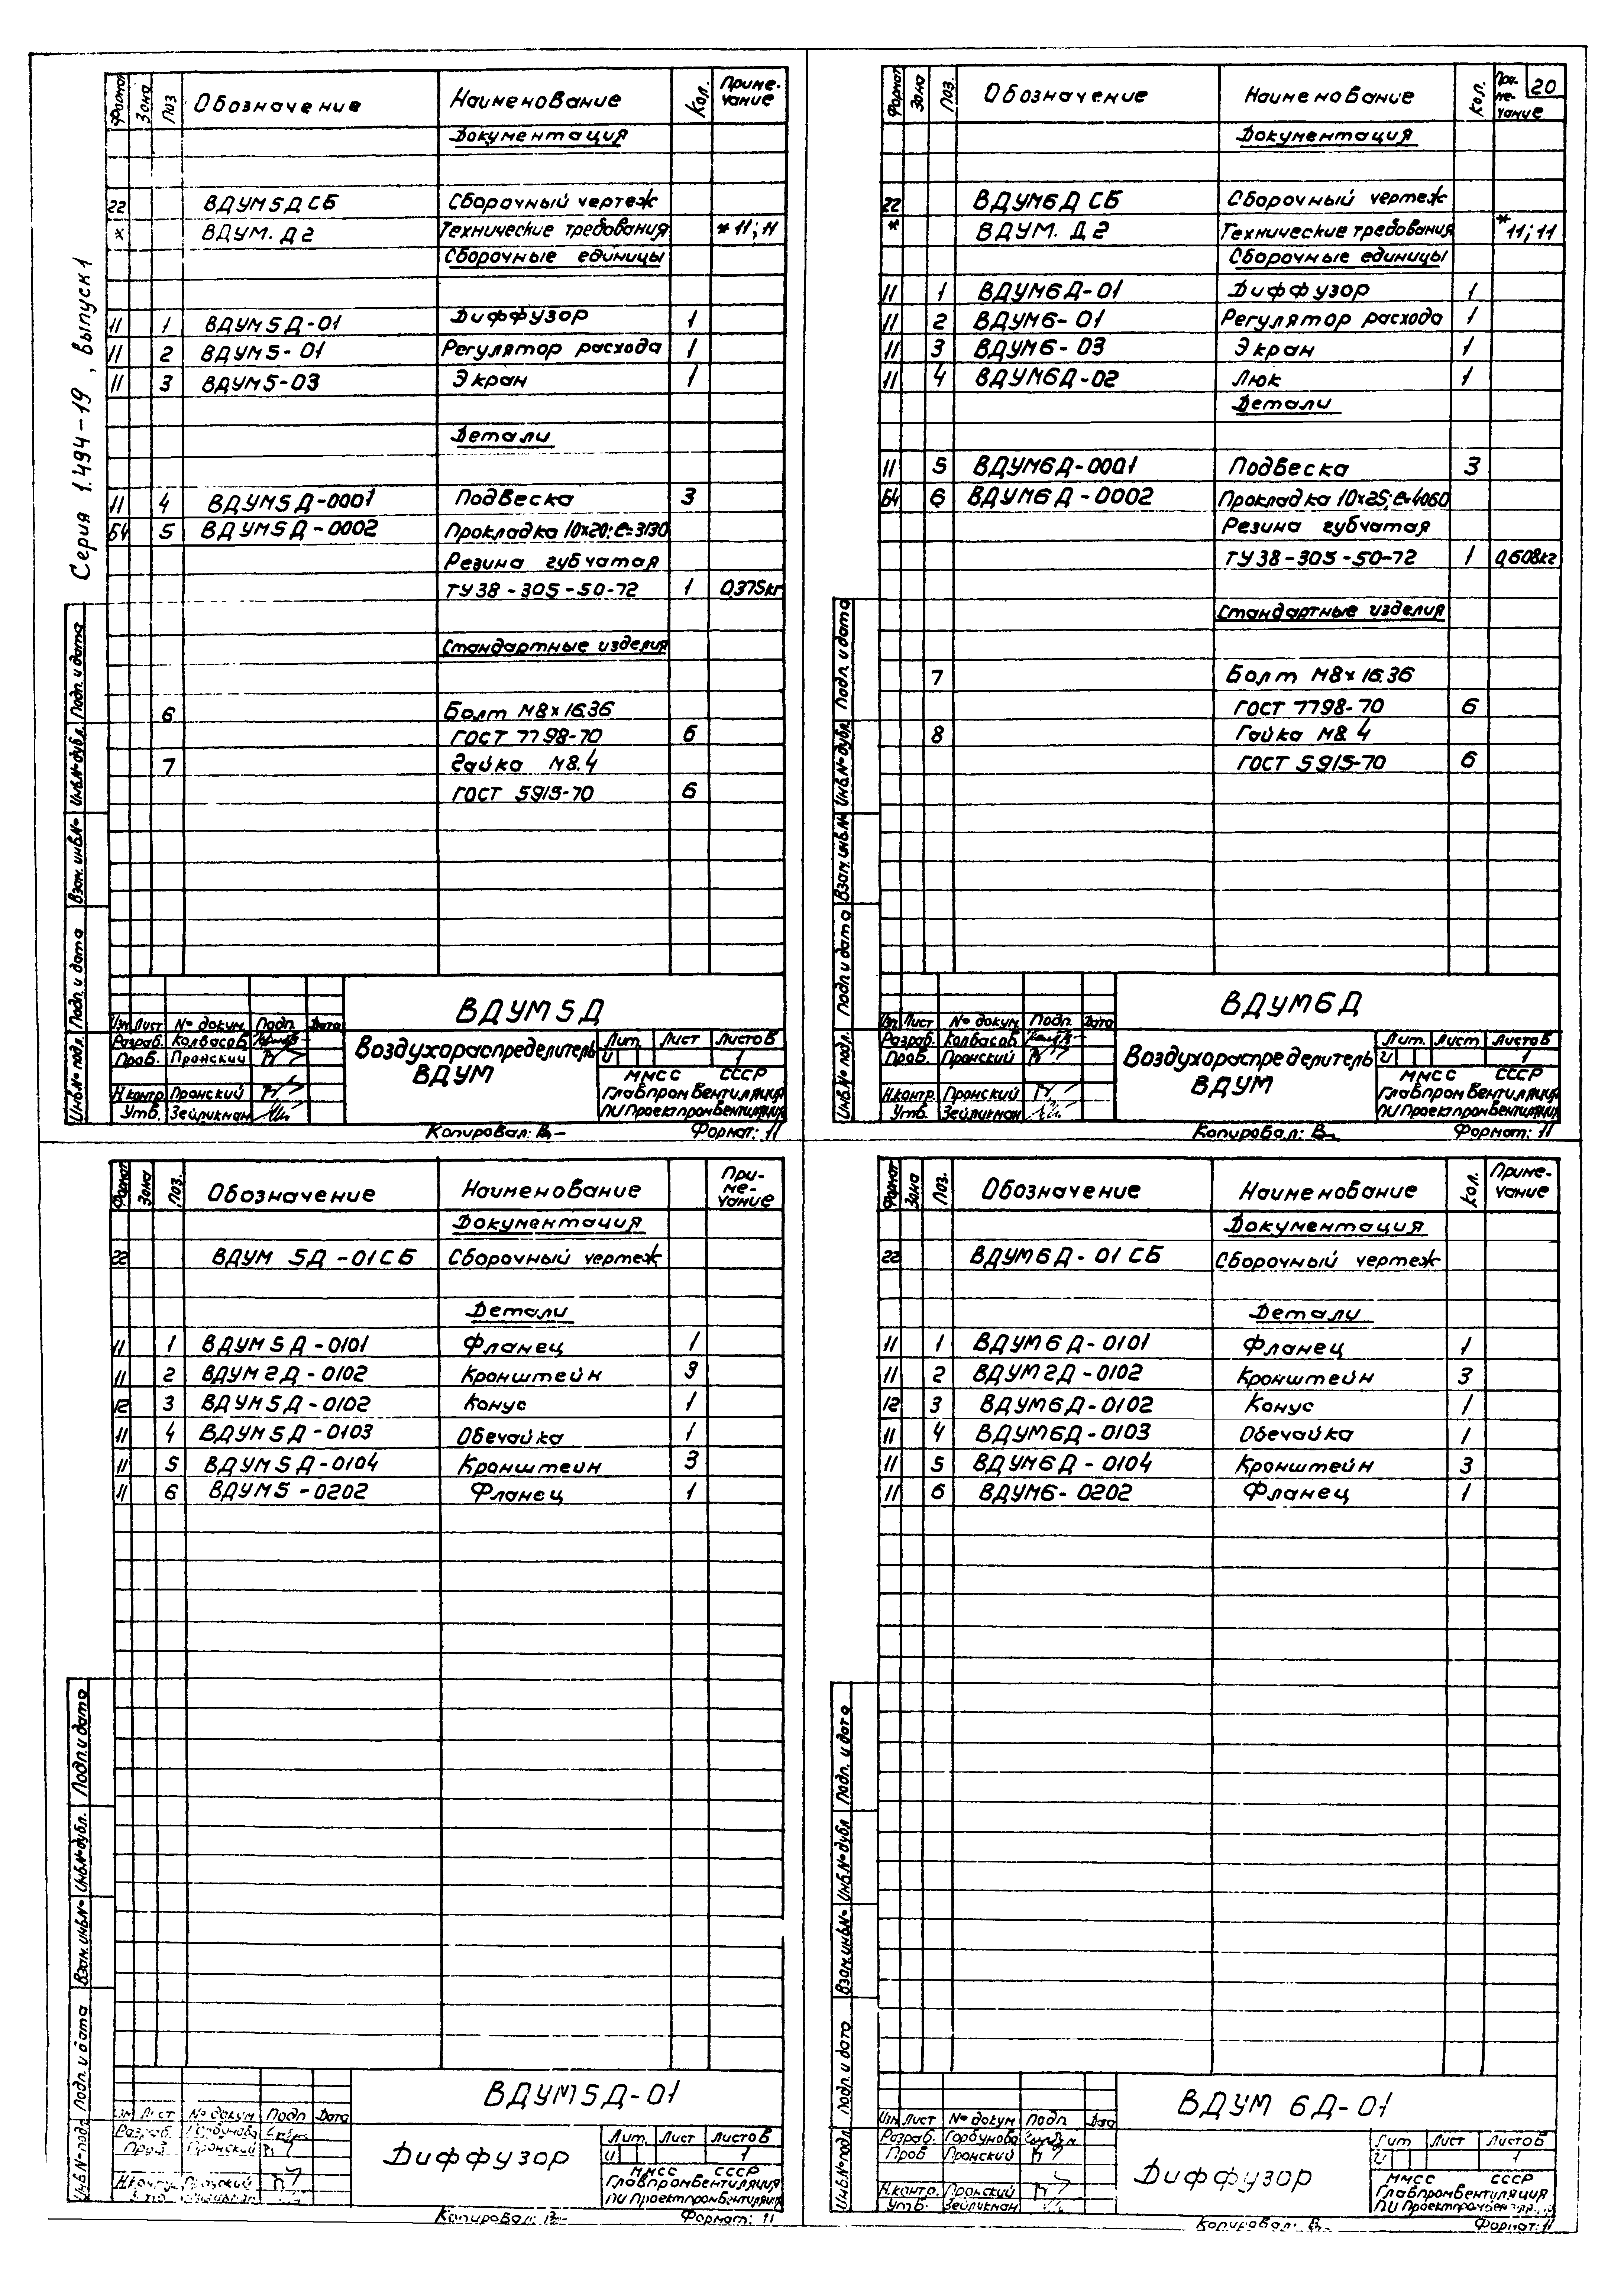 Серия 1.494-19, выпуск 1
Формат Зона Поз Обозначение Наименование Кол. Приме-чание
Документация
22 ВДУМ5ДСБ Сборочный чертеж
* ВДУМ.Д2 Технические требования *11;11
Сборочные единицы
11 1 ВДУМ5Д-01 Диффузор 1
11 2 ВДУМ5-01 Регулятор расхода 1
11 3 ВДУМ5-03 Экран 1
Детали
11 4 ВДУМ5Д-0001 Подвеска 3
Б4 5 ВДУМ5Д-0002 Прокладка 10x20; ℓ=3130
Резина губчатая
ТУ38-305-50-72 1 0,375кг
Стандартные изделия
6 Болт М8x16.36
ГОСТ 7798-70 6
7 Гайка М8.4
ГОСТ 5915-70 6
Инв.№ подл. Подп. и дата Взам. инв.№ Инв.№ дубл. Подп. и дата
ВДУМ5Д
Изм Лист № докум. Подп. Дата
Разраб. Колбасов
Пров. Пронский
Н.контр. Пронский
Утв. Зейликман
Воздухораспределитель
ВДУМ
Лит. Лист Листов
И 1
ММСС СССР
Главпромвентиляция
ПИ Проектпромвентиляция
Копировал: Формат: 11
20
Формат Зона Поз. Обозначение Наименование Кол. При-ме-чание
Документация
22 ВДУМ6ДСБ Сборочный чертеж
* ВДУМ.Д2 Технические требования *11;11
Сборочные единицы
11 1 ВДУМ6Д-01 Диффузор 1
11 2 ВДУМ6-01 Регулятор расхода 1
11 3 ВДУМ6-03 Экран 1
11 4 ВДУМ6Д-02 Люк 1
Детали
11 5 ВДУМ6Д-0001 Подвеска 3
Б4 6 ВДУМ6Д-0002 Прокладка 10x25; ℓ=4060
Резина губчатая
ТУ38-305-50-72 1 0,608кг
Стандартные изделия
7 Болт М8x16.36
ГОСТ 7798-70 6
8 Гайка М8.4
ГОСТ 5915-70 6
Инв.№ подл. Подп. и дата Взам. инв.№ Инв.№ дубл. Подп. и дата
ВДУМ6Д
Изм Лист № докум. Подп. Дата
Разраб. Колбасов
Пров. Пронский
Н.контр. Пронский
Утв. Зейликман
Воздухораспределитель
ВДУМ
Лит. Лист Листов
И 1
ММСС СССР
Главпромвентиляция
ПИ Проектпромвентиляция
Копировал: Формат: 11
Формат Зона Поз. Обозначение Наименование При-ме-чание
Документация
22 ВДУМ 5Д-01СБ Сборочный чертеж
Детали
11 1 ВДУМ5Д-0101 Фланец 1
11 2 ВДУМ2Д-0102 Кронштейн 3
12 3 ВДУМ5Д-0102 Конус 1
11 4 ВДУМ5Д-0103 Обечайка 1
11 5 ВДУМ5Д-0104 Кронштейн 3
11 6 ВДУМ5-0202 Фланец 1
Инв.№ подл Подп. и дата Взам.инв.№ Инв.№дубл. Подп.и дата
ВДУМ5Д-01
Изм Лист № докум Подп Дата
Разраб. Горбунова
Пров. Пронский
Н.контр. Пронский
Диффузор
Лит. Лист Листов
И 1
ММСС СССР
Главпромвентиляция
ПИ Проектпромвентиляция
Копировал: Формат: 11
Формат Зона Поз. Обозначение Наименование Кол. Приме-чание
Документация
22 ВДУМ6Д-01СБ Сборочный чертеж
Детали
11 1 ВДУМ6Д-0101 Фланец 1
11 2 ВДУМ2Д-0102 Кронштейн 3
12 3 ВДУМ6Д-0102 Конус 1
11 4 ВДУМ6Д-0103 Обечайка 1
11 5 ВДУМ6Д-0104 Кронштейн 3
11 6 ВДУМ6-0202 Фланец 1
Инв.№подл Подп. и дата Взам.инв.№ Инв.№дубл Подп. и дата
ВДУМ 6Д-01
Изм Лист № докум Подп Дата
Разраб. Горбунова
Пров Пронский
Н.контр. Пронский
Утв. Зейликман
Диффузор
Лит Лист Листов
И 1
ММСС СССР
Главпромвентиляция
ПИ Проектпромвентиляция
Копировал: Формат: 11